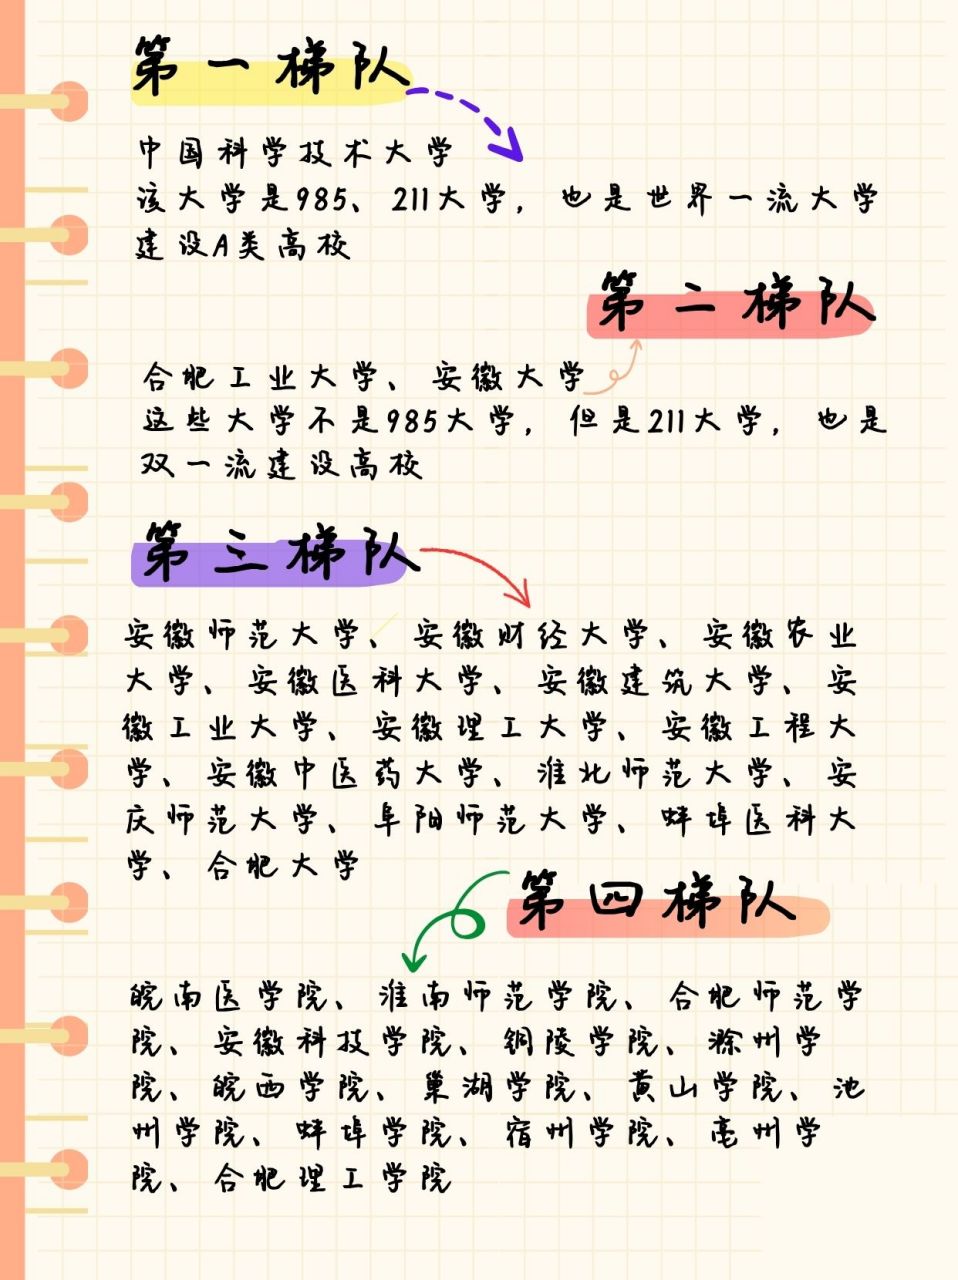 第一梯队
中国科学技术大学
该大学是985、211大学，也是世界一流大学
建设A类高校
第二梯队
合肥工业大学、安徽大学
这些大学不是985大学，但是211大学，也是
双一流建设高校
第三梯队
安徽师范大学、安徽财经大学、安徽农业
大学、安徽医科大学、安徽建筑大学、安
徽工业大学、安徽理工大学、安徽工程大
学、安徽中医药大学、淮北师范大学、安
庆师范大学、阜阳师范大学、蚌埠医科大
学、合肥大学
第四梯队
皖南医学院、淮南师范学院、合肥师范学
院、安徽科技学院、铜陵学院、滁州学
院、皖西学院、巢湖学院、黄山学院、池
州学院、蚌埠学院、宿州学院、亳州学
院、合肥理工学院